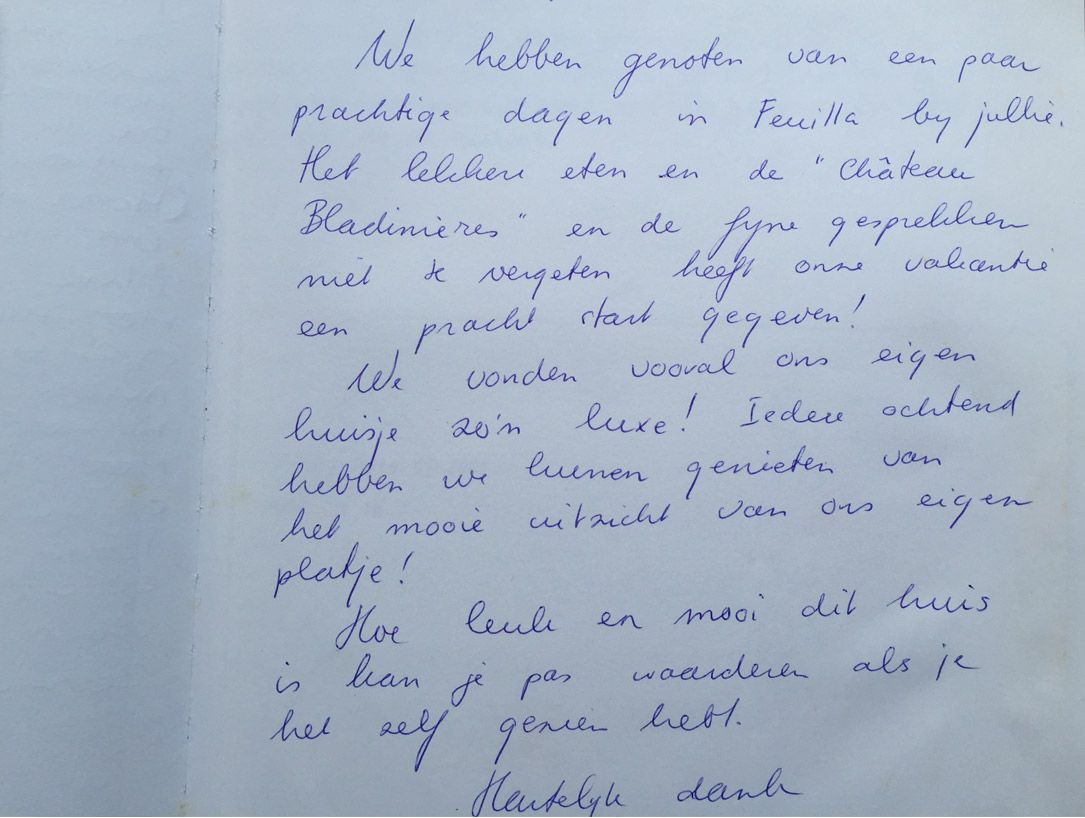 We hebben genoten van een paar
prachtige dagen in Feuilla by jullie.
Het lekkere eten en de "Château
Bladinières" en de fyne gesprekken
niet te vergeten heeft onze vakantie
een pracht start gegeven!
We vonden vooral ons eigen
huisje zo'n luxe! Iedere ochtend
hebben we kunnen genieten van
het mooie uitzicht van ons eigen
platje!
Hoe leuk en mooi dit huis
is kan je pas waarderen als je
het zelf gezien hebt.
Hartelyk dank